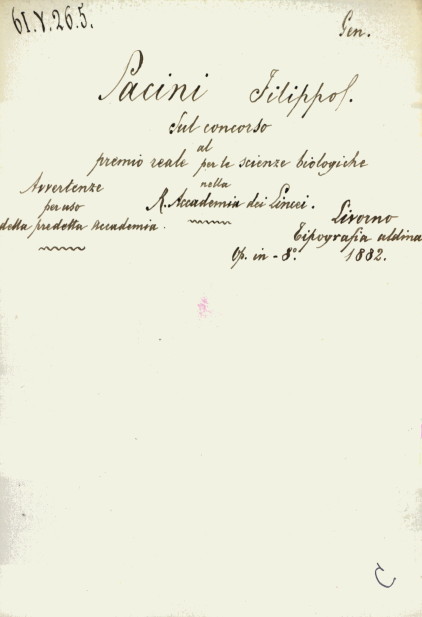 61.V.26.5.
Gen.
Pacini Filippo.
Sul concorso
al
premio reale per le scienze biologiche
nella
R. Accademia dei Lincei.
Avvertenze
per uso
della predetta Accademia.
Livorno
Tipografia aldina
Op. in-8°. 1882.
C